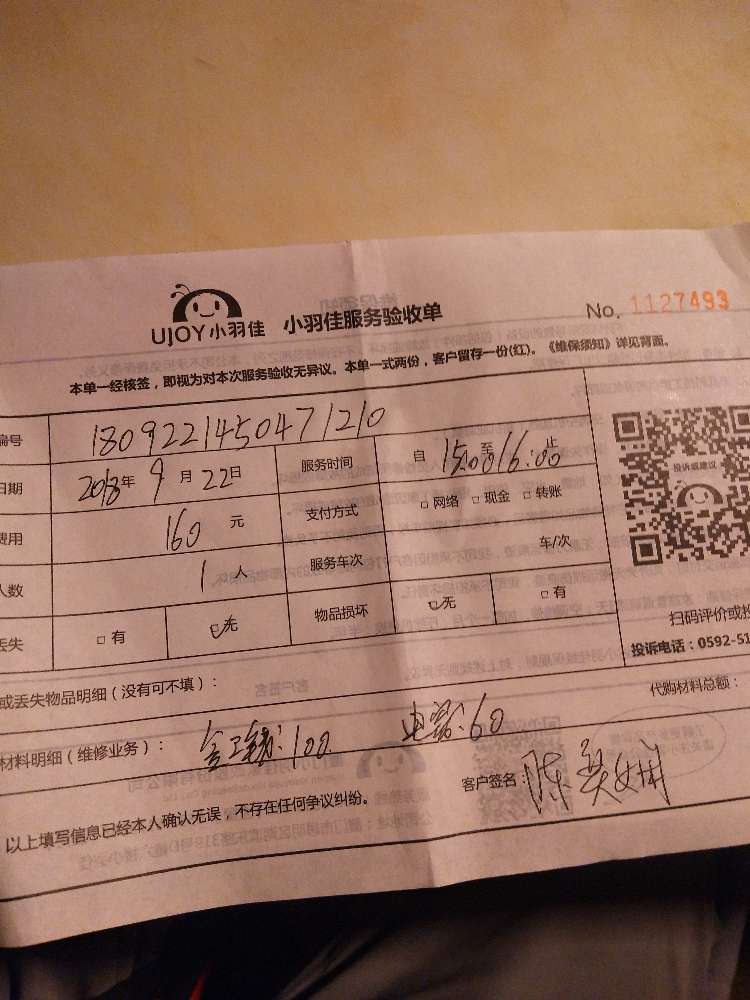 UJOY小羽佳 小羽佳服务验收单 No. 1127493
本单一经核签，即视为对本次服务验收无异议。本单一式两份，客户留存一份(红)。《维保须知》详见背面。
编号 1809221450471210
日期 2018年9月22日 服务时间 自15:00至16:00止
费用 160元 支付方式 □网络 □现金 □转账
人数 1人 服务车次 车/次
丢失 □有 ☑无 物品损坏 ☑无 □有
投诉或建议
扫码评价或投
投诉电话：0592-51
或丢失物品明细（没有可不填）：
代购材料总额：
材料明细（维修业务）： :100 :60
以上填写信息已经本人确认无误，不存在任何争议纠纷。 客户签名: 陈